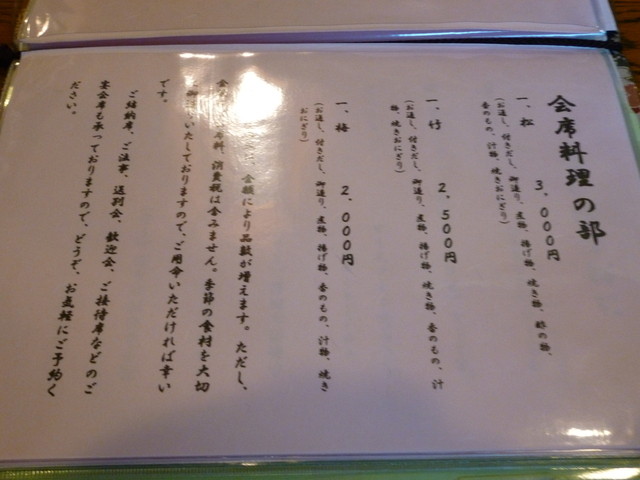 会席料理の部
一、松　3,000円
(お通し、付きだし、御造り、煮物、揚げ物、焼き物、酢の物、
香のもの、汁物、焼きおにぎり)
一、竹　2,500円
(お通し、付きだし、御造り、煮物、揚げ物、焼き物、香のもの、汁
物、焼きおにぎり)
一、梅　2,000円
(お通し、付きだし、御造り、煮物、揚げ物、香のもの、汁物、焼き
おにぎり)
は、金額により品数が増えます。ただし、
料、消費税は含みません。季節の食材を大切
いたしておりますので、ご用命いただければ幸い
です。
ご結納席、ご法事、送別会、歓迎会、ご接待席などのご
宴会席も承っておりますので、どうぞ、お気軽にご予約く
ださい。